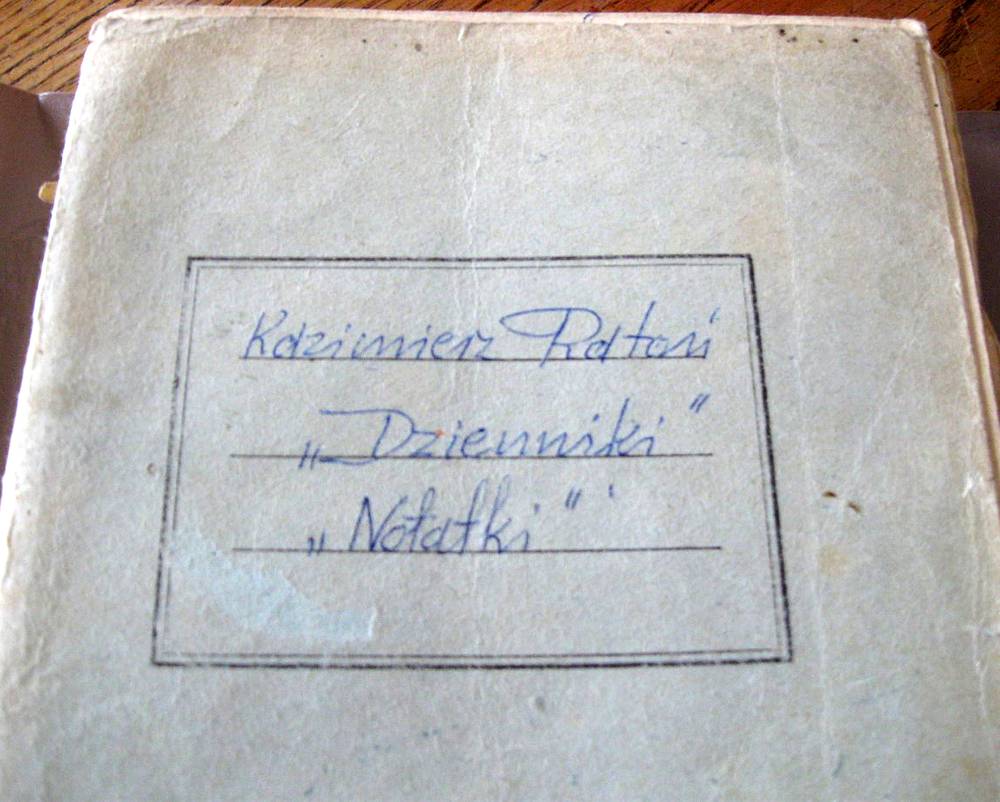 Kazimierz Ratoń
„Dzienniki”
„Notatki”